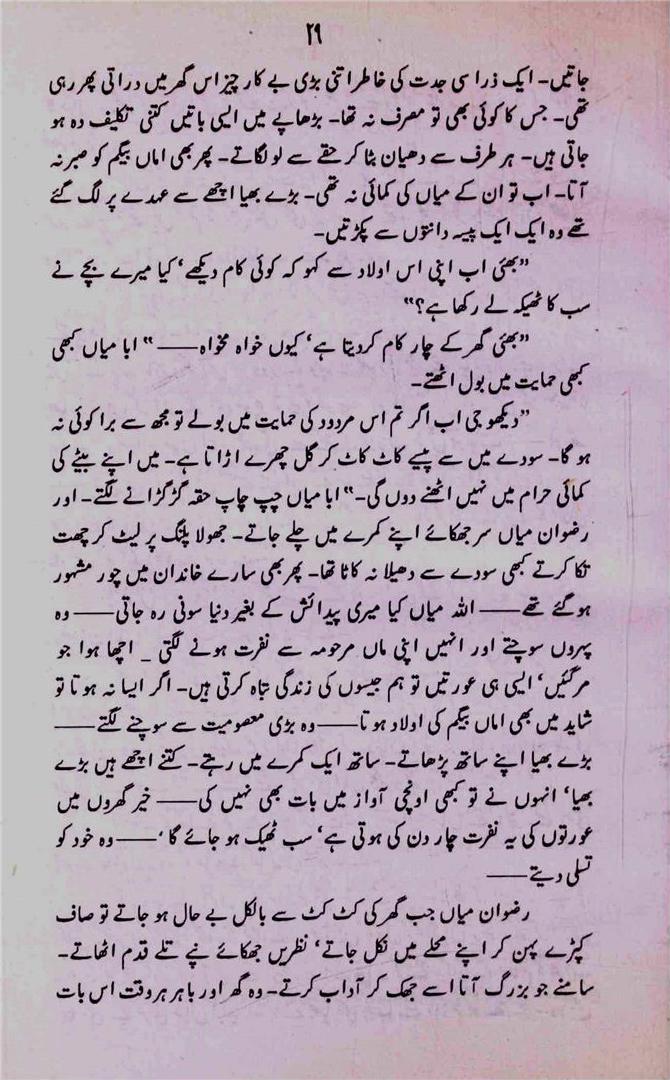 ۲۹
جاتیں۔ ایک ذرا سی جدت کی خاطر اتنی بڑی بے کار چیز اس گھر میں دراتی پھر رہی
تھی۔ جس کا کوئی بھی تو مصرف نہ تھا۔ بڑھاپے میں ایسی باتیں کتنی تکلیف دہ ہو
جاتی ہیں۔ ہر طرف سے دھیان ہٹا کر حقے سے لو لگاتے۔ پھر بھی اماں بیگم کو صبر نہ
آتا۔ اب تو ان کے میاں کی کمائی نہ تھی۔ بڑے بھیا اچھے سے عہدے پر لگ گئے
تھے وہ ایک ایک پیسہ دانتوں سے پکڑتیں۔
”بھئی اب اپنی اس اولاد سے کہو کہ کوئی کام دیکھے‘ کیا میرے بچے نے
سب کا ٹھیکہ لے رکھا ہے؟“
”بھئی گھر کے چار کام کر دیتا ہے‘ کیوں خواہ مخواہ——“ ابا میاں کبھی
کبھی حمایت میں بول اٹھتے۔
”دیکھو جی اب اگر تم اس مردود کی حمایت میں بولے تو مجھ سے برا کوئی نہ
ہو گا۔ سودے میں سے پیسے کاٹ کاٹ کر گل چھرے اڑاتا ہے۔ میں اپنے بیٹے کی
کمائی حرام میں نہیں اٹھنے دوں گی۔“ ابا میاں چپ چاپ حقہ گڑگڑانے لگتے۔ اور
رضوان میاں سر جھکائے اپنے کمرے میں چلے جاتے۔ جھولا پلنگ پر لیٹ کر چھت
تکا کرتے کبھی سودے سے دھیلا نہ کاٹا تھا۔ پھر بھی سارے خاندان میں چور مشہور
ہو گئے تھے—— اللہ میاں کیا میری پیدائش کے بغیر دنیا سونی رہ جاتی—— وہ
پہروں سوچتے اور انہیں اپنی ماں مرحومہ سے نفرت ہونے لگتی ۔ اچھا ہوا جو
مر گئیں‘ ایسی ہی عورتیں تو ہم جیسوں کی زندگی تباہ کرتی ہیں۔ اگر ایسا نہ ہوتا تو
شاید میں بھی اماں بیگم کی اولاد ہوتا—— وہ بڑی معصومیت سے سوچنے لگتے——
بڑے بھیا اپنے ساتھ پڑھاتے۔ ساتھ ایک کمرے میں رہتے۔ کتنے اچھے ہیں بڑے
بھیا‘ انہوں نے تو کبھی اونچی آواز میں بات بھی نہیں کی—— خیر گھروں میں
عورتوں کی یہ نفرت چار دن کی ہوتی ہے‘ سب ٹھیک ہو جائے گا‘—— وہ خود کو
تسلی دیتے——
رضوان میاں جب گھر کی کٹ کٹ سے بالکل بے حال ہو جاتے تو صاف
کپڑے پہن کر اپنے محلے میں نکل جاتے‘ نظریں جھکائے نپے تلے قدم اٹھاتے۔
سامنے جو بزرگ آتا اسے جھک کر آداب کرتے۔ وہ گھر اور باہر ہر وقت اس بات